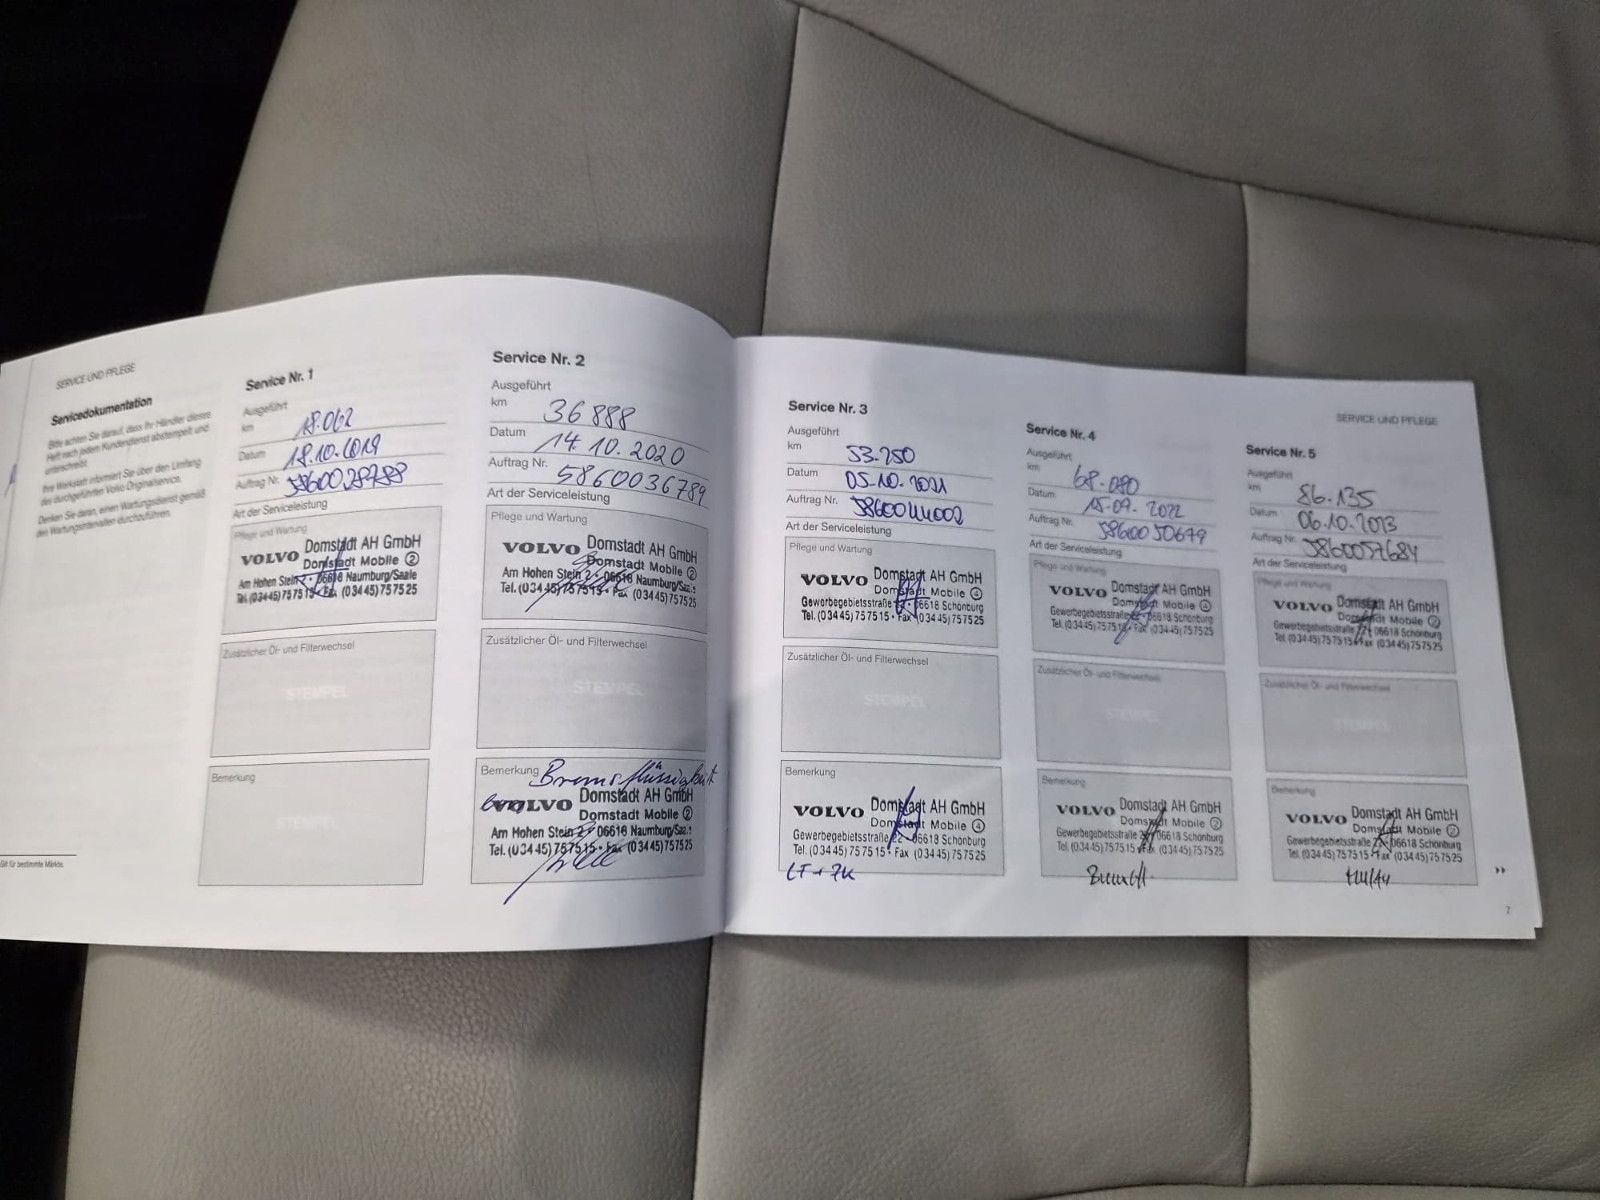 SERVICE UND PFLEGE
Servicedokumentation
Bitte achten Sie darauf, dass Ihr Händler dieses
Heft nach jedem Kundendienst abstempelt und
unterschreibt.
Ihre Werkstatt informiert Sie über den Umfang
des durchgeführten Volvo Originalservice.
Denken Sie daran, einen Wartungsdienst gemäß
den Wartungsintervallen durchzuführen.
Gilt für bestimmte Märkte.
Service Nr. 1
Ausgeführt
km 18.062
Datum 18.10.2019
Auftrag Nr.
Art der Serviceleistung
Pflege und Wartung
VOLVO Domstadt AH GmbH
Domstadt Mobile ②
Am Hohen Stein 2 • 06618 Naumburg/Saale
Tel. (03445) 757515 • Fax (03445) 757525
Zusätzlicher Öl- und Filterwechsel
STEMPEL
Bemerkung
STEMPEL
Service Nr. 2
Ausgeführt
km 36888
Datum 14.10.2020
Auftrag Nr. 5860036789
Art der Serviceleistung
Pflege und Wartung
VOLVO Domstadt AH GmbH
Domstadt Mobile ②
Am Hohen Stein 2 • 06618 Naumburg/Saale
Tel. (03445) 757515 • Fax (03445) 757525
Zusätzlicher Öl- und Filterwechsel
STEMPEL
Bemerkung Bremsflüssigkeit
VOLVO Domstadt AH GmbH
Domstadt Mobile ②
Am Hohen Stein 2 • 06618 Naumburg/Saale
Tel. (03445) 757515 • Fax (03445) 757525
SERVICE UND PFLEGE
Service Nr. 3
Ausgeführt
km 53.250
Datum 05.10.2021
Auftrag Nr. 5860044002
Art der Serviceleistung
Pflege und Wartung
VOLVO Domstadt AH GmbH
Domstadt Mobile ④
Gewerbegebietsstraße 22 • 06618 Schönburg
Tel. (03445) 757515 • Fax (03445) 757525
Zusätzlicher Öl- und Filterwechsel
STEMPEL
Bemerkung
VOLVO Domstadt AH GmbH
Domstadt Mobile ④
Gewerbegebietsstraße 22 • 06618 Schönburg
Tel. (03445) 757515 • Fax (03445) 757525
LF + ZK
Service Nr. 4
Ausgeführt
km 68.080
Datum 15.09.2022
Auftrag Nr. 5860050679
Art der Serviceleistung
Pflege und Wartung
VOLVO Domstadt AH GmbH
Domstadt Mobile ④
Gewerbegebietsstraße 22 • 06618 Schönburg
Tel. (03445) 757515 • Fax (03445) 757525
Zusätzlicher Öl- und Filterwechsel
STEMPEL
Bemerkung
VOLVO Domstadt AH GmbH
Domstadt Mobile ②
Gewerbegebietsstraße 22 • 06618 Schönburg
Tel. (03445) 757515 • Fax (03445) 757525
Service Nr. 5
Ausgeführt
km 86.135
Datum 06.10.2023
Auftrag Nr. 5860057684
Art der Serviceleistung
Pflege und Wartung
VOLVO Domstadt AH GmbH
Domstadt Mobile ②
Gewerbegebietsstraße 22 • 06618 Schönburg
Tel. (03445) 757515 • Fax (03445) 757525
Zusätzlicher Öl- und Filterwechsel
STEMPEL
Bemerkung
VOLVO Domstadt AH GmbH
Domstadt Mobile ②
Gewerbegebietsstraße 22 • 06618 Schönburg
Tel. (03445) 757515 • Fax (03445) 757525
7